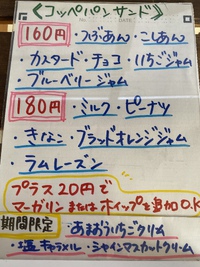 《コッペパンサンド》
160円 ・つぶあん・こしあん
・カスタード・チョコ・いちごジャム
・ブルーベリージャム
180円 ・ミルク・ピーナツ
・きなこ・ブラッドオレンジジャム
・ラムレーズン
プラス20円で
マーガリンまたはホイップを追加O.K
期間限定 ・あまおういちごクリーム
・塩キャラメル・シャインマスカットクリーム